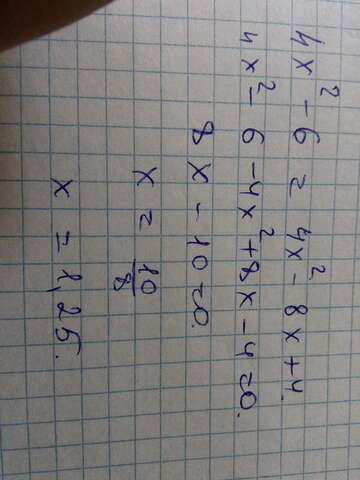 4x² - 6 = 4x² - 8x + 4.
4x² - 6 - 4x² + 8x - 4 = 0.
8x - 10 = 0.
x = 10/8
x = 1,25.